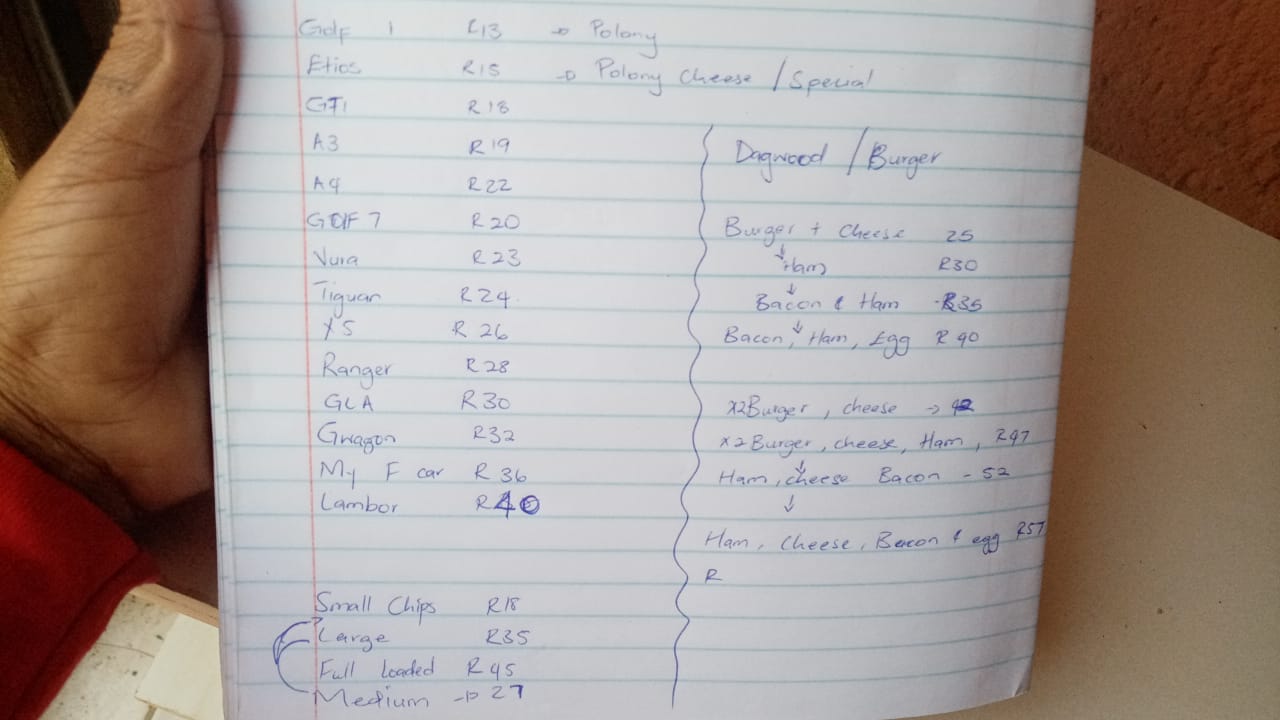 Golf 1 R13 → Polony
Etios R15 → Polony Cheese / Special
GTI R18
A3 R19
A4 R22
GOlF 7 R20
Vura R23
Tiguan R24
X5 R26
Ranger R28
GLA R30
Gwagon R32
My F car R36
Lambor R40
Small Chips R18
Large R35
Full loaded R45
Medium → 27
Dagwood / Burger
Burger + Cheese 25
↓ Ham R30
↓ Bacon & Ham R35
Bacon, ↓ Ham, Egg R40
x2Burger, cheese → 42
x2Burger, cheese, Ham, R47
Ham, cheese Bacon - 52
↓
Ham, Cheese, Bacon & egg R57
R